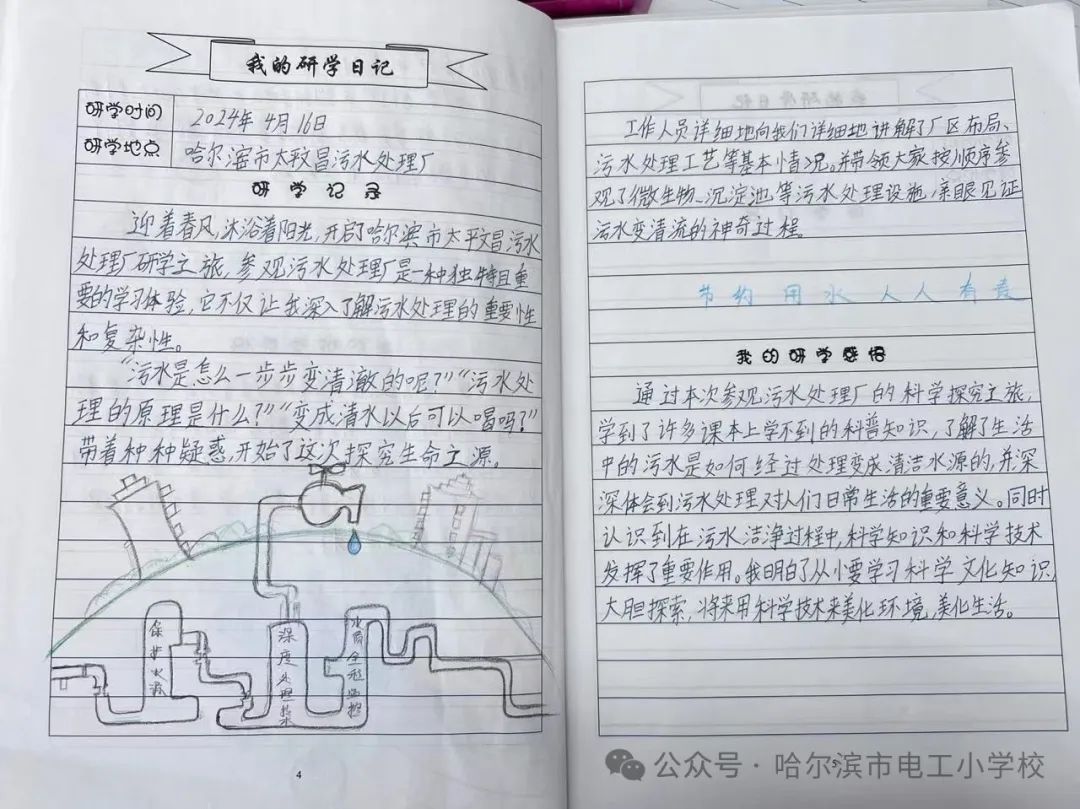 我的研学日记
研学时间 2024年4月16日
研学地点 哈尔滨市太文昌污水处理厂
研学记录
迎着春风,沐浴着阳光,开启了哈尔滨市太平文昌污水
处理厂研学之旅,参观污水处理厂是一种独特且重
要的学习体验,它不仅让我深入了解污水处理的重要性
和复杂性。
“污水是怎么一步步变清澈的呢?”“污水处
理的原理是什么?”“变成清水以后可以喝吗?”
带着种种疑惑,开始了这次探究生命之源。
保护水源
深度处理技术
水质全程监控
4
工作人员详细地向我们详细地讲解了厂区布局、
污水处理工艺等基本情况。并带领大家按顺序参
观了微生物、沉淀池,等污水处理设施,亲眼见证
污水变清流的神奇过程。
节约用水人人有责
我的研学感悟
通过本次参观污水处理厂的科学探究之旅,
学到了许多课本上学不到的科普知识,了解了生活
中的污水是如何经过处理变成清洁水源的,并深
深体会到污水处理对人们日常生活的重要意义。同时
认识到在污水洁净过程中,科学知识和科学技术
发挥了重要作用。我明白了从小要学习科学文化知识,
大胆探索,将来用科学技术来美化环境,美化生活。
5
公众号·哈尔滨市电工小学校